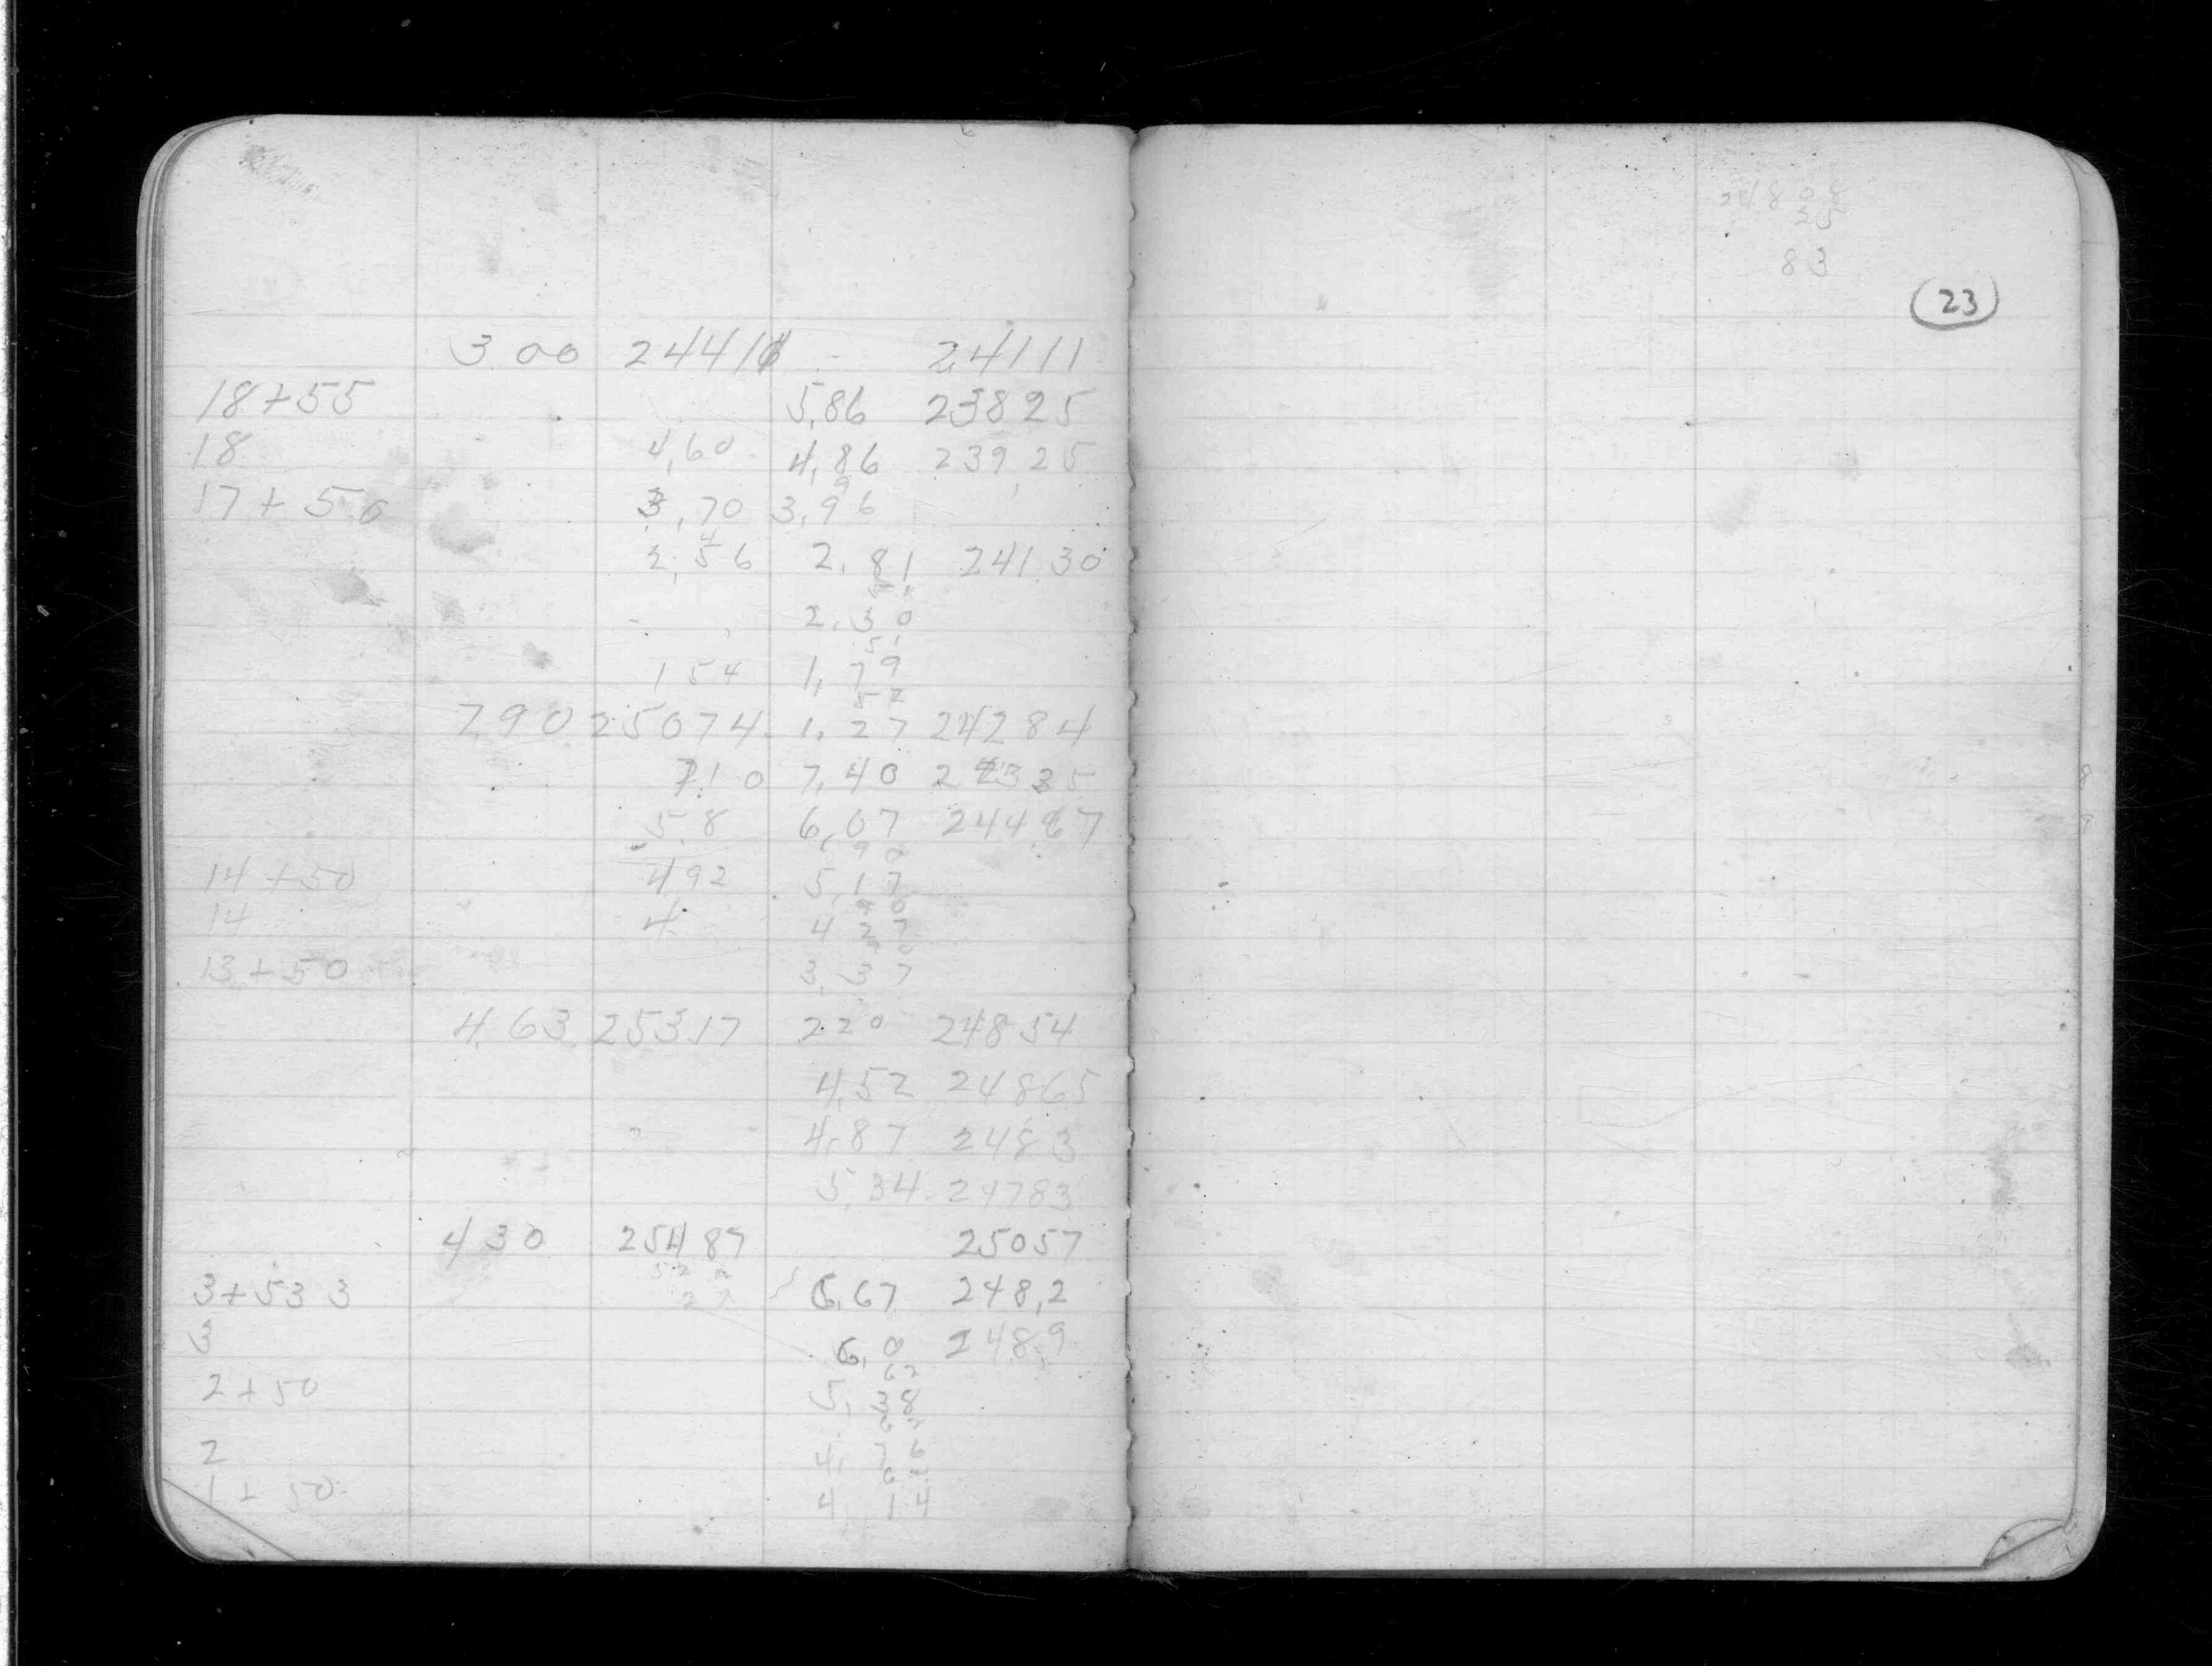 3 00 24411 24111
18+55 5,86 23825
18 4,60 4,86 239,25
9
17+50 3,70 3,96
4
2,56 2.81 24130
51
2.30
51
154 1,79
52
790 25074 1.27 24284
710 7,40 24335
5.8 6,07 24467
90
14+50 492 5,17
90
14 4 4 27
90
13+50 3,37
4 63 25317 220 24854
4,52 24865
4,87 2483
5,34 24783
430 25487 25057
3+53 3 6,67 248,2
3 6,0 248,9
62
2+50 5,38
62
2 4,76
62
1+50 4,14
24808
25
83
23